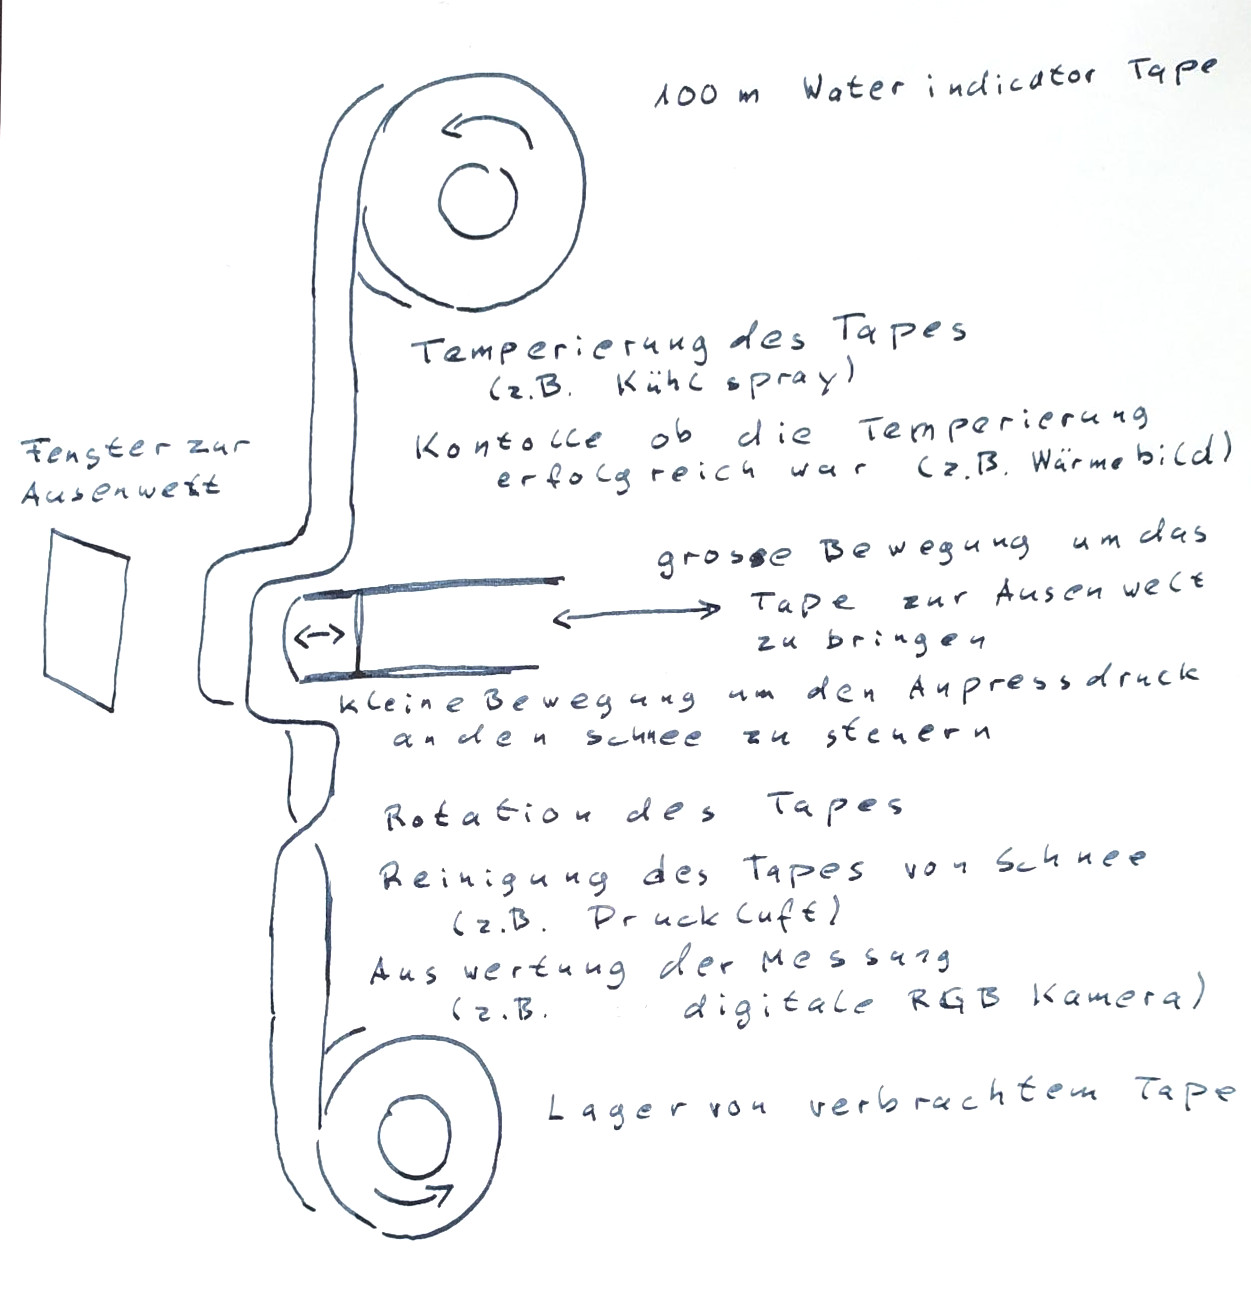 100 m Water indicator Tape
Temperierung des Tapes
(z.B. Kühlspray)
Kontolle ob die Temperierung
erfolgreich war (z.B. Wärmebild)
Fenster zur
Ausenwelt
grosse Bewegung um das
Tape zur Ausenwelt
zu bringen
kleine Bewegung um den Anpressdruck
an den Schnee zu steuern
Rotation des Tapes
Reinigung des Tapes von Schnee
(z.B. Druckluft)
Auswertung der Messung
(z.B. digitale RGB Kamera)
Lager von verbrachtem Tape